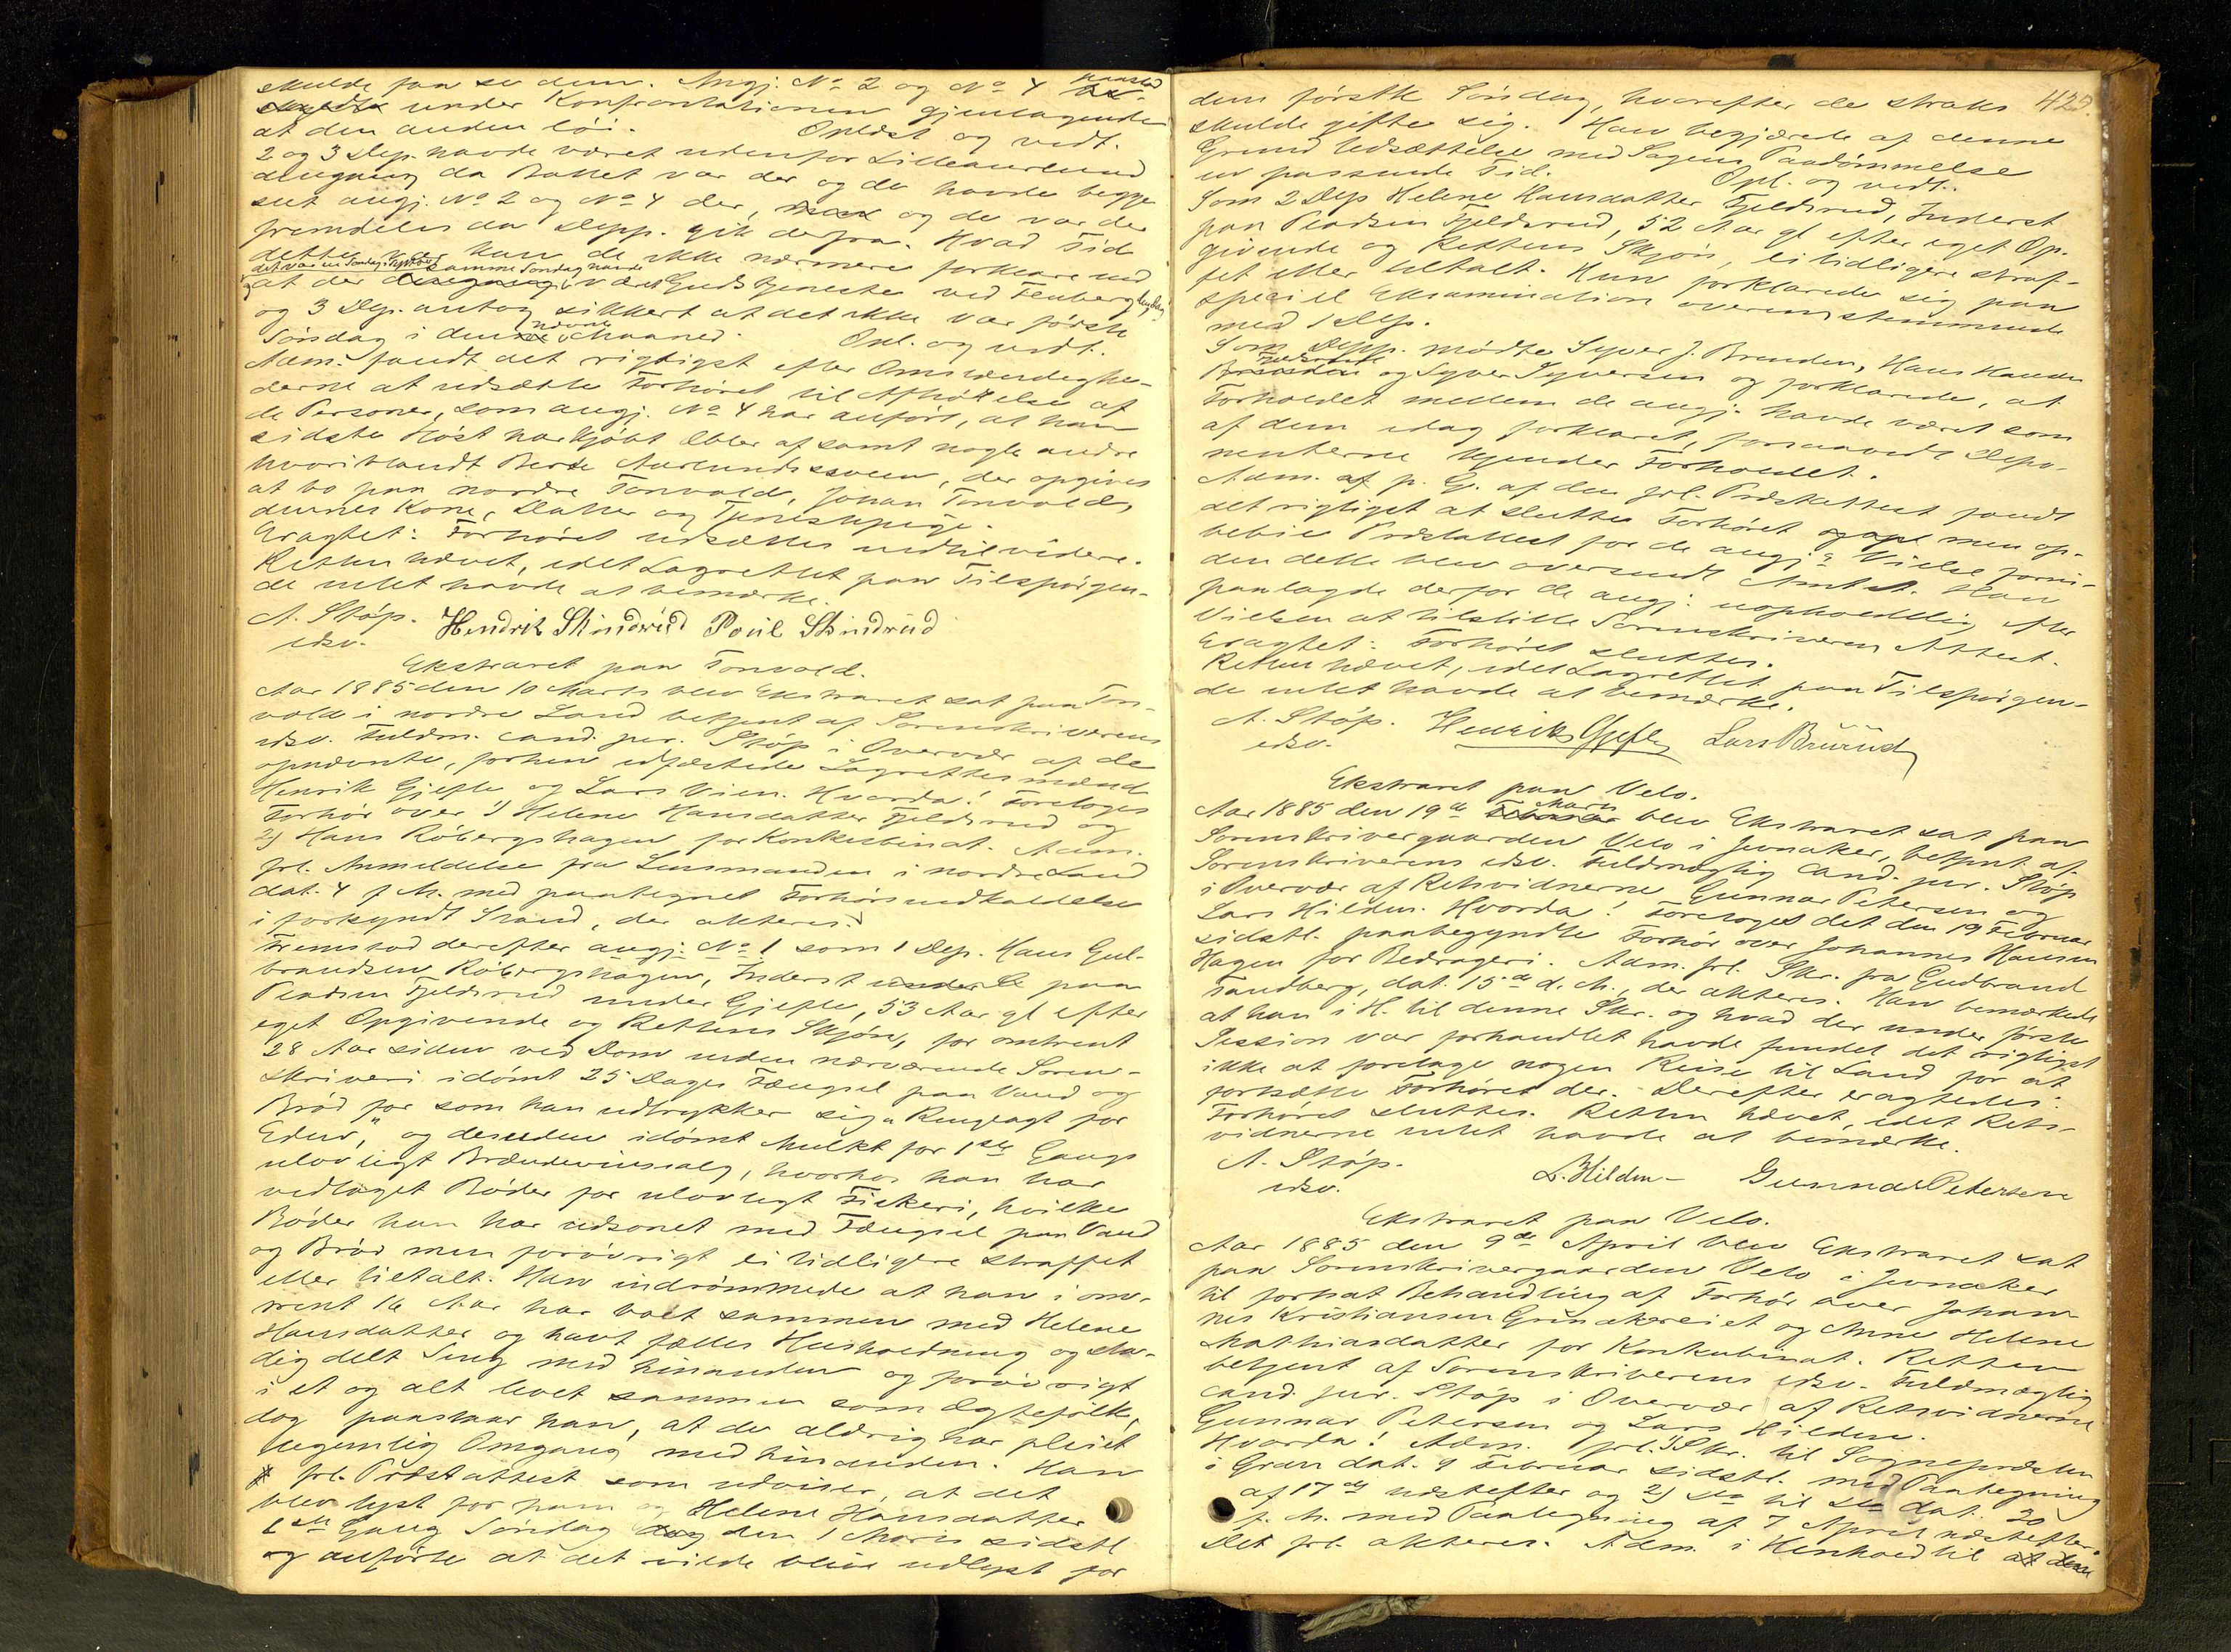 skulde faa se dem. Angj. No 2 og No 4 paastod
under Konfrontationen gjentagende
at den anden löi. Oplæst og vedt.
2 og 3 Dep. havde været udenfor Lilleaurlund
dengang da Ballet var der og de havde begge
seet angj. No 2 og No 4 der, og de var der
fremdeles da Depp. gik derfra. Hvad Tid
dette var kan de ikke nærmere forklare end
det var en Söndag samme Söndag havde
at der været Gudstjeneste ved
og 3 Dep. antog sikkert at det ikke var förste
Söndag i den nævnte Maaned. Opl. og vedt.
Adm. fandt det rigtigst efter Omstændighe-
derne at udsætte Forhöret til Afhörelse af
de Personer, som angj. No 4 har anfört, at han
sidste Höst har kjöbt Ebler af samt nogle andre
hvoriblandt Berte Aurlundssveen, der opgives
at bo paa nordre Tonvold, Johan Tonvold,
dennes Kone, Datter og Tjenestepige.
Eragtet: Forhöret udsættes indtil videre.
Retten hævet, idet Lagrettet paa Tilspörgen-
de intet havde at bemærke.
A. Stöp. Hendrik Skindrud Poul Skindrud
edsv.
Ekstraret paa Tonvold.
Aar 1885 den 10 Marts blev Ekstraret sat paa Ton-
vold i nordre Land betjent af Sorenskriverens
edsv. Fuldm. cand. jur. Stöp i Overvær af de
opnævnte, forhen edfæstede Lagrettesmænd
Henrik Gjefle og Lars Vien. Hvorda! Foretoges
Forhör over 1) Helene Hansdatter Fjeldsrud og
2) Hans Röbergshagen for Konkubinat. Adm.
frl. Anmeldelse fra Lensmanden i nordre Land
dat. 4 f. M. med paategnet Forhörsindkaldelse
i forkyndt Stand, der akteres.
Fremstod derefter angj. No 1 som 1 Dep. Hans Gul-
brandsen Röbergshagen, Inderst paa
Pladsen Fjeldsrud under Gjefle, 53 Aar gl efter
eget Opgivende og Rettens Skjön, for omtrent
28 Aar siden ved Dom inden nærværende Soren-
skriveri idömt 25 Dages Fængsel paa Vand og
Bröd for som han udtrykker sig „Ringeagt for
Eden,“ og desuden idömt Mulkt for 1ste Gangs
ulovligt Brændevinssalg, hvorhos han har
vedtaget Böder for ulovligt Fiskeri, hvilke
Böder han har udsonet med Fængsel paa Vand
og Bröd men forövrigt ei tidligere straffet
eller tiltalt. Han indrömmede at han i om-
trent 16 Aar har boet sammen med Helene
Hansdatter og havt fælles Husholdning og sta-
dig delt Seng med hinanden og forövrigt
i et og alt levet sammen som Ægtefolk,
dog paastaar han, at de aldrig har pleiet
legemlig Omgang med hinanden. Han
frl. Prestattest som udviser, at det
blev lyst for ham og Helene Hansdatter
1ste Gang Söndag den 1 Marts sidstl.
og anförte at det vilde blive udlyst for
425.
dem förstk. Söndag, hvorefter de straks
skulde gifte sig. Han begjærede af denne
Grund Udsættelse med Sagens Paadömmelse
en passende Tid. Opl. og vedt.
Som 2 Dep Helene Hansdatter Fjeldsrud, Inderst
paa Pladsen Fjeldsrud, 52 Aar gl efter eget Op-
givende og Rettens Skjön, ei tidligere straf-
fet eller tiltalt. Hun forklarede sig paa
speciel Eksamination overensstemmende
med 1 Dep.
Som Depp. mödte Syver J. Brenden, Hans Hansen
og Syver Syversen og forklarede, at
Forholdet mellem de angj. havde været som
af dem idag forklaret, forsaavidt Depo-
nenterne kjender Forholdet.
Adm. af p. G. af den frl. Prestattest fandt
det rigtigst at slutte Forhöret men op-
bebie Prestattest for de angj.s Vielse foru-
den dette blev oversendt Amtet. Han
paalagde derfor de angj. uopholdelig efter
Vielsen at tilstille Sorenskriveren Attest.
Eragtet: Forhöret sluttes.
Retten hævet, idet Lagrettet paa Tilspörgen-
de intet havde at bemærke.
A. Stöp. Henrik Gjefle Lars Bruud
edsv.
Ekstraret paa Velo.
Aar 1885 den 19de Marts blev Ekstraret sat paa
Sorenskrivergaarden Velo i Jevnaker, betjent af
Sorenskriverens edsv. Fuldmægtig cand. jur. Stöp
i Overvær af Retsvidnerne Gunnar Petersen og
Lars Hilden. Hvorda! Foretoges det den 19 Februar
sidstl. paabegyndte Forhör over Johannes Hansen
Hagen for Bedrageri. Adm. frl. Skr. fra Gudbrand
Sandberg, dat. 15de d. M., der akteres. Han bemærkede
at han i H. til denne Skr. og hvad der under förste
Session var forhandlet havde fundet det rigtigst
ikke at foretage nogen Reise til Land for at
fortsætte Forhöret der. Derefter eragtedes:
Forhöret sluttes. Retten hævet, idet Rets-
vidnerne intet havde at bemærke.
A. Stöp. L. Hilden Gunnar Petersen
edsv.
Ekstraret paa Velo.
Aar 1885 den 9de April blev Ekstraret sat
paa Sorenskrivergaarden Velo i Jevnaker
til fortsat Behandling af Forhör over Johan-
nes Kristiansen Grinakereiet og Anne Helene
Mathiasdatter for Konkubinat. Retten
betjent af Sorenskriverens edsv. Fuldmægtig
cand. jur. Stöp i Overvær af Retsvidnerne
Gunnar Petersen og Lars Hilden.
Hvorda! Adm. frl. 1) Skr. til Sognepresten
i Gran dat. 9 Februar sidstl. med Paategning
af 17de næstefter og 2) do til do dat. 20
f. M. med Paategning af 7 April næstefter.
Det frl. akteres. Adm. i Henhold til